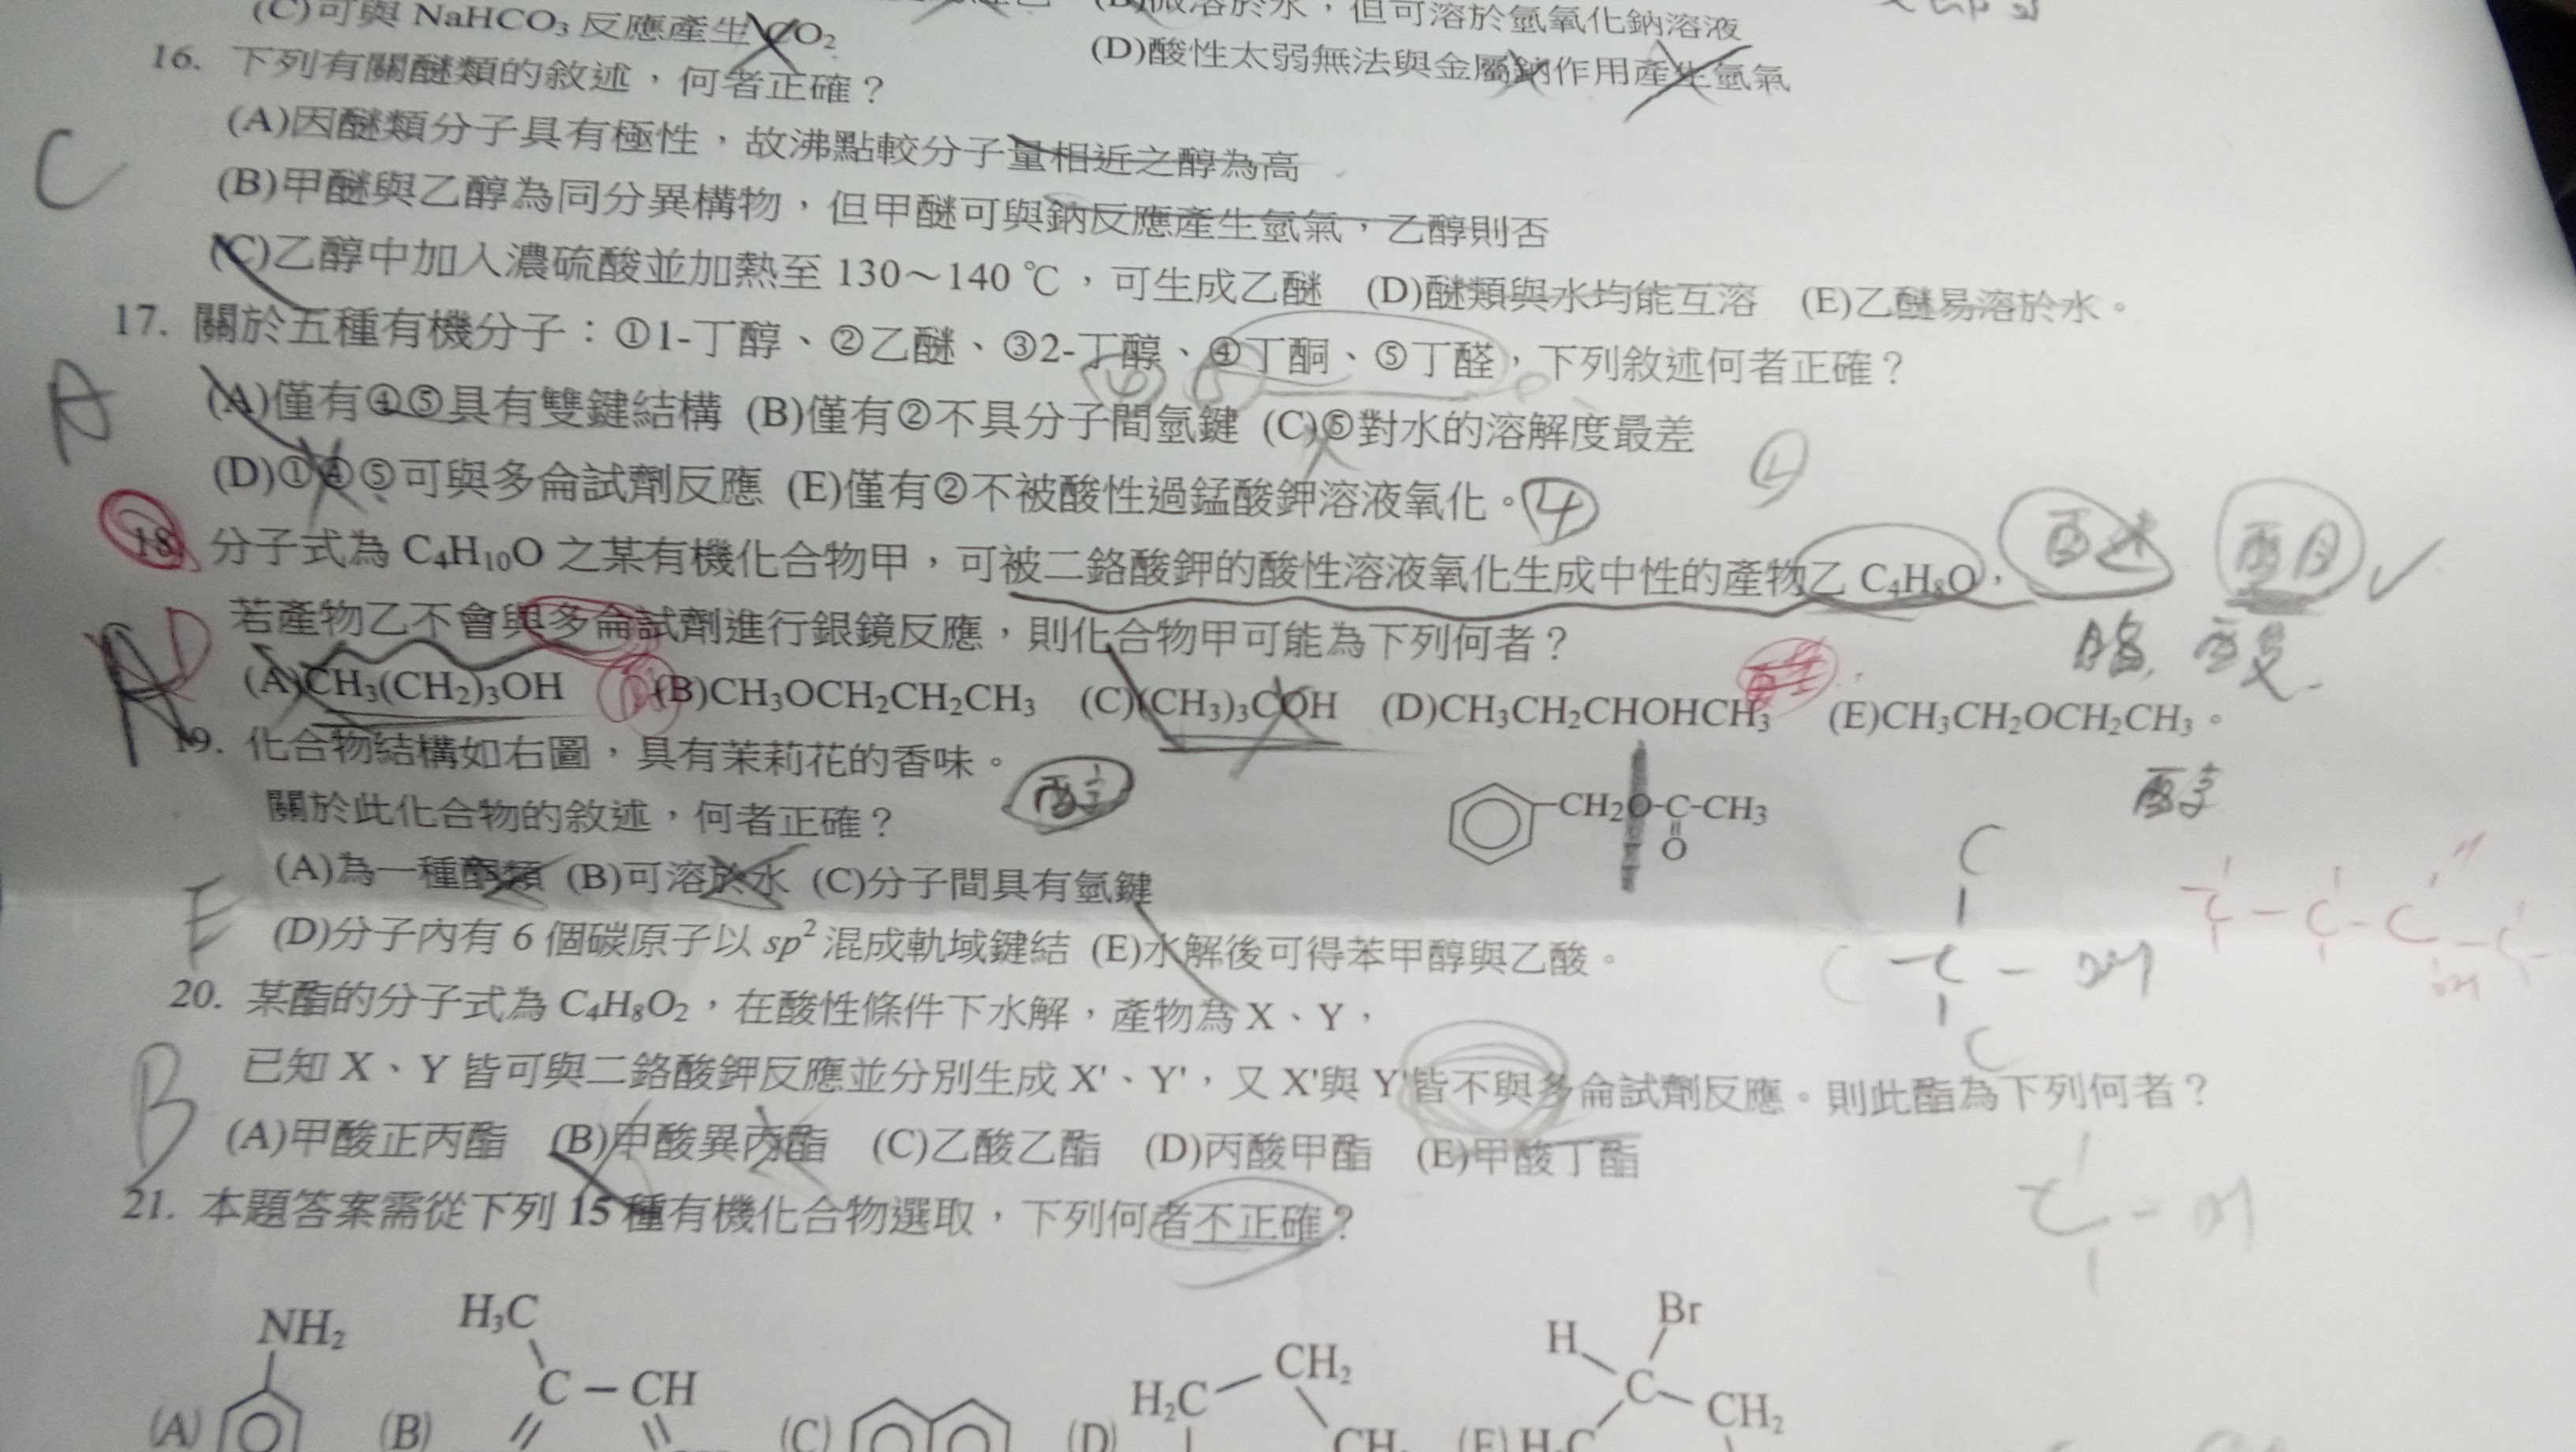 (C)可與 NaHCO₃ 反應產生 CO₂
溶於水，但可溶於氫氧化鈉溶液
(D)酸性太弱無法與金屬鈉作用產生氫氣
16. 下列有關醚類的敘述，何者正確？
(A)因醚類分子具有極性，故沸點較分子量相近之醇為高
C
(B)甲醚與乙醇為同分異構物，但甲醚可與鈉反應產生氫氣，乙醇則否
(C)乙醇中加入濃硫酸並加熱至 130～140 ℃，可生成乙醚 (D)醚類與水均能互溶 (E)乙醚易溶於水。
17. 關於五種有機分子：①1-丁醇、②乙醚、③2-丁醇、④丁酮、⑤丁醛，下列敘述何者正確？
A
(A)僅有④⑤具有雙鍵結構 (B)僅有②不具分子間氫鍵 (C)⑤對水的溶解度最差
(D)①④⑤可與多侖試劑反應 (E)僅有②不被酸性過錳酸鉀溶液氧化。④
18. 分子式為 C₄H₁₀O 之某有機化合物甲，可被二鉻酸鉀的酸性溶液氧化生成中性的產物乙 C₄H₈O，
若產物乙不會與多侖試劑進行銀鏡反應，則化合物甲可能為下列何者？
D
(A)CH₃(CH₂)₃OH (B)CH₃OCH₂CH₂CH₃ (C)(CH₃)₃COH (D)CH₃CH₂CHOHCH₃ (E)CH₃CH₂OCH₂CH₃。
19. 化合物結構如右圖，具有茉莉花的香味。
醇
CH₂O-C-CH₃
O
醇
關於此化合物的敘述，何者正確？
(A)為一種酮類 (B)可溶於水 (C)分子間具有氫鍵
E
(D)分子內有 6 個碳原子以 sp² 混成軌域鍵結 (E)水解後可得苯甲醇與乙酸。
20. 某酯的分子式為 C₄H₈O₂，在酸性條件下水解，產物為 X、Y，
已知 X、Y 皆可與二鉻酸鉀反應並分別生成 X'、Y'，又 X'與 Y'皆不與多侖試劑反應。則此酯為下列何者？
B
(A)甲酸正丙酯 (B)甲酸異丙酯 (C)乙酸乙酯 (D)丙酸甲酯 (E)甲酸丁酯
21. 本題答案需從下列 15 種有機化合物選取，下列何者不正確？
(A)
NH₂
(B)
H₃C
C – CH
(C)
(D)
H₂C
CH₂
CH₂
(E)
H
Br
C
CH₂
H₃C